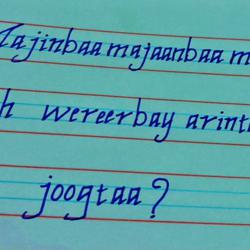 Majinbaa majaanbaa m
h wereerbay arint
joogtaa?